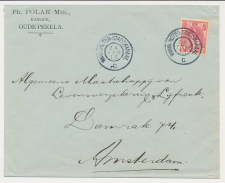 Ph. POLAK Mzn.,
BANKIER,
OUDE-PEKELA.
Algemeene Maatschappij van
Levensverzekering en Lijfrente
Damrak 74
Amsterdam